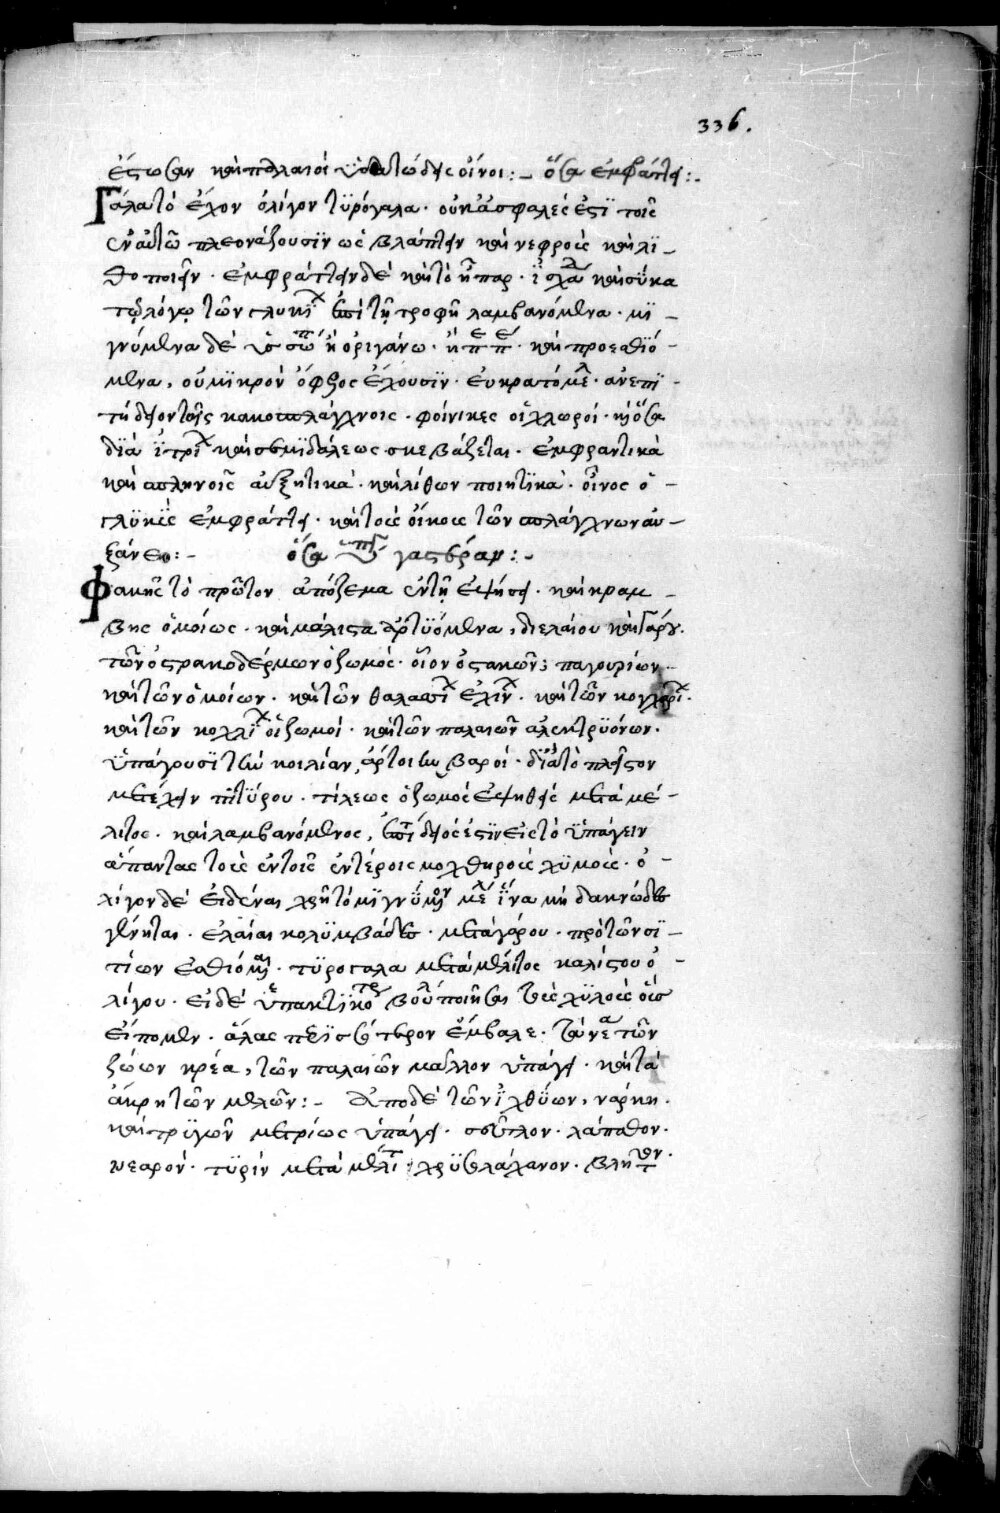 336.
ἔστωσαν καὶ παλαιοὶ ὑδατώδεις οἶνοι :– ὅσα ἐμφράττει :–
Γάλα τὸ ἔχον ὀλίγον τυρόγαλα · οὐκ ἀσφαλές ἐστϊ τοῖς
ἐν αὐτῶ πλεονάζουσϊν ὡς βλάπτειν καὶ νεφροὺς καὶ λϊ –
θοποιεῖν · ἐμφράττειν δὲ καὶ τὸ ἧπαρ · ἰσχα καὶ σῦκα
τῷ λόγῳ τῶν γλυκ ἐπὶ τῇ τροφῇ λαμβανόμενα · μϊ –
γνύμενα δὲ ὑσσώπ ἢ ὀριγάνω · ἢ πεπέ · καὶ προεσθιό –
μενα, οὐ μϊκρὸν ὄφελος ἔχουσϊν · ἐν κρατόμελ · ἀνεπϊ –
τήδειον τοῖς κακοσπλάγχνοις · φοίνικες οἱ χλωροί · καὶ ὅσα
δϊὰ ἰτρί καὶ σεμϊδάλεως σκευάζεται · ἐμφρακτικὰ
καὶ σπληνὸς αὐξητικὰ · καὶ λίθων ποιητϊκὰ · οἶνος ὁ –
γλϋκὺς ἐμφράττει · καὶ τοὺς ὄγκους τῶν σπλάγχνων αὐ –
ξάνει :– ὅσα ὑπ γαστέραν :–
Φακῆς τὸ πρῶτον ἀπόζεμα ἐν τῇ ἑψήσει · καὶ κραμ –
βης ὁμοίως · καὶ μάλιστα ἀρτϋόμενα, δι ἐλαίου καὶ γάρου ·
τῶν ὀστρακοδέρμων ὁ ζωμὸς · οἷον ὀστακῶν ; παγουρίων ·
καὶ τῶν ὁμοίων · καὶ τῶν θαλασσί ἐχίν · καὶ τῶν κογχαρί ·
καὶ τῶν κοχλί οἱ ζωμοί · καὶ τῶν παλαιῶν ἀλεκτρϋόνων ·
ὑπάγουσϊ τὴν κοιλίαν, ἄρτοι πιτυροί · δϊὰ τὸ πλεῖστον
μετέχειν πϊτύρου · τήλεως ὁ ζωμὸς ἑψηθεὶς μετὰ μέ –
λιτος · καὶ λαμβανόμενος, ἐπιτήδειός ἐστϊν εἰς τὸ ὑπάγειν
ἅπαντας τοὺς ἐν τοῖς ἐντέροις μοχθηροὺς χϋμοὺς · ὀ –
λίγον δὲ εἰδέναι χρὴ τὸ μϊγνύμενον μέλι ἵνα μὴ δακνῶδες
γένηται · ἐλαίαι κολϋμβάδες · μετὰ γάρου · πρὸ τῶν σϊ –
τίων ἐσθιόμεναι · τϋρόγαλα μετὰ μέλιτος καλίστου ὀ –
λίγου · εἰ δὲ ὑπακτϊκότερ βούλ ποιῆσαι τοὺς χϋλοὺς οὓς
εἴπομεν · ἅλας περϊσσότερον ἔμβαλε · τὰ νέα τῶν
ζώων κρέα, τῶν παλαιῶν μᾶλλον ὑπάγει · καὶ τὰ
ἄκρη τῶν μελῶν :– Ἀπὸ δὲ τῶν ἰχθύων, νάρκη ·
καὶ τρϋγὼν μετρίως ὑπάγει · σεῦτλον · λάπαθον ·
νεαρὸν · τϋρὶν μετὰ μέλιτ · χρϋσολάχανον · βλητ ·